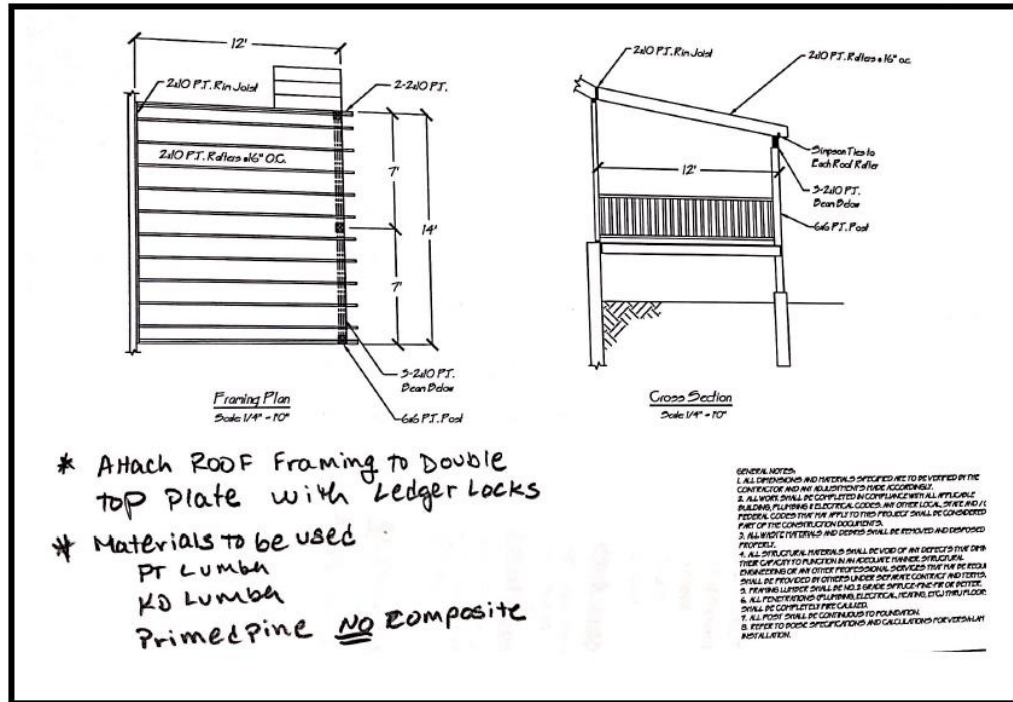 12'
2x10 P.T. Rim Joist
2-2x10 P.T.
2x10 P.T. Rafters @ 16" O.C.
7'
14'
7'
3-2x10 P.T.
Beam Below
6x6 P.T. Post
Framing Plan
Scale: 1/4" = 1'0"
2x10 P.T. Rim Joist
2x10 P.T. Rafters @ 16" o.c.
Simpson Ties to
Each Roof Rafter
12'
3-2x10 P.T.
Beam Below
6x6 P.T. Post
Cross Section
Scale: 1/4" = 1'0"
* Attach ROOF Framing to Double
top Plate with Ledger Locks
* Materials to be used
PT Lumber
KD Lumber
Primed Pine NO Composite
GENERAL NOTES:
1. ALL DIMENSIONS AND MATERIALS SPECIFIED ARE TO BE VERIFIED BY THE
CONTRACTOR AND ANY ADJUSTMENTS MADE ACCORDINGLY.
2. ALL WORK SHALL BE COMPLETED IN COMPLIANCE WITH ALL APPLICABLE
BUILDING, PLUMBING & ELECTRICAL CODES. ANY OTHER LOCAL, STATE AND /
FEDERAL CODES THAT MAY APPLY TO THIS PROJECT SHALL BE CONSIDERED
PART OF THE CONSTRUCTION DOCUMENTS.
3. ALL WASTE MATERIALS AND DEBRIS SHALL BE REMOVED AND DISPOSED
PROPERLY.
4. ALL STRUCTURAL MATERIALS SHALL BE VOID OF ANY DEFECTS THAT
THEIR CAPACITY TO FUNCTION IN AN ADEQUATE MANNER. STRUCTURAL
ENGINEERING OR ANY OTHER PROFESSIONAL SERVICES THAT MAY BE
SHALL BE PROVIDED BY OTHERS UNDER SEPARATE CONTRACT AND TERMS.
5. FRAMING LUMBER SHALL BE NO. 2 GRADE SPRUCE-PINE-FIR OR BETTER.
6. ALL PENETRATIONS (PLUMBING, ELECTRICAL, HEATING, ETC.) THRU FLOOR
SHALL BE COMPLETELY FIRE CAULKED.
7. ALL POST SHALL BE CONTINUOUS TO FOUNDATION.
8. REFER TO BOISE SPECIFICATIONS AND CALCULATIONS FOR VERSA-LAM
INSTALLATION.